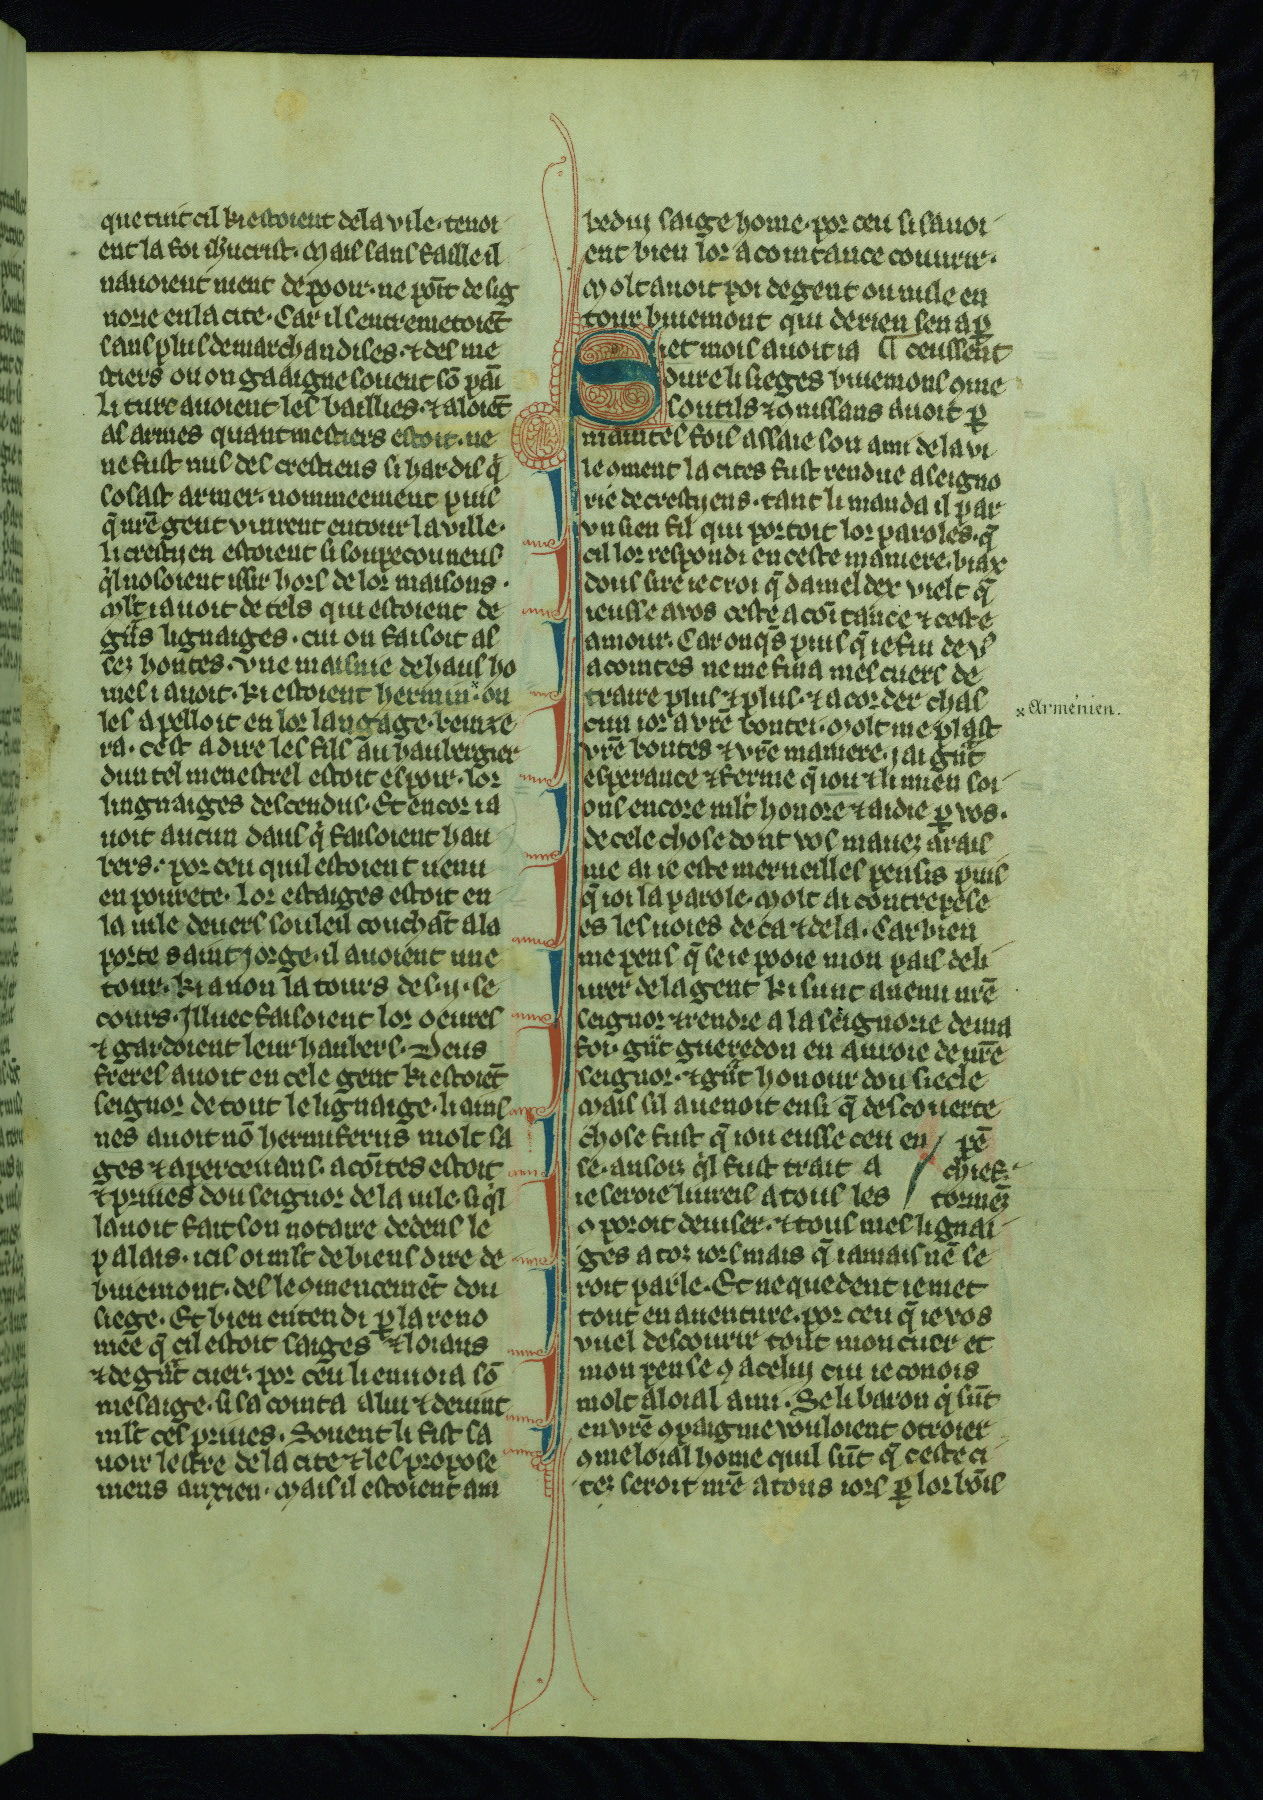 47
que tuit cil ki estoient de la vile · tenoi
ent la foi ihucrist · Mais sans faille il
nauoient nient de pooir · ne point de sig
norie en la cite · Car il sentremetoiēt
sans plus de marchandises · ⁊ des me
stiers ou on gaaigne souent sō pāi
li turc auoient les baillies · ⁊ aloiēt
as armes quant mestiers estoit · ne
ne fust nus des crestiens si hardis q̄
sosast armer · nommeement puis
q̄ nrē gent vinrent entour la ville ·
li crestyen estoient si soupeconneus
q̄l nosoient issir hors de lor maisons ·
Mlt i auoit de tels qui estoient de
gn̄s lignaiges · cui on faisoit as
sez hontes · vne maisnie de haus ho
mes i auoit · ki estoient hermin ˣ on
les apelloit en lor langage · benize
ra · cest a dire les fils au haubergier
dun tel menestrel estoit espoir · lor
lingnaiges descendus · Et encor i a
uoit aucun daus q̄ faisoient hau
bers · por ceu quil estoient uenu
en pourete · lor estaiges estoit en
la uile deuers souleil couchāt a la
porte saint jorge · il auoient une
tour · ki a non la tours des · ij · se
cours · Illuec faisoient lor oeures
⁊ gardoient leur haubers · Deus
freres auoit en cele gent ki estoiēt
seignor de tout le lignaige · li ains
nes auoit nō hermiferus molt sa
ges ⁊ aperceuans · acoītes estoit
⁊ priues dou seignor de la uile · si q̄l
lauoit fait son notaire dedens le
palais · icil oi mlt de biens dire de
buiemont · des le 9mencemēt dou
siege · Et bien entendi ꝑ la reno
mee q̄ cil estoit saiges ⁊ loiaus
⁊ de gn̄t cuer · por ceu li enuoia sō
mesaige · si sacointa a lui ⁊ deuint
mlt ces priues · Souent li fist sa
uoir lestre de la cite ⁊ les propose
mens auxien · Mais il estoient am
bedui saige home · por ceu si sauoi
ent bien lor acointance couurir ·
Molt auoit poi de gent ou mile en
tour buiemont qui de rien sen aꝑ
ceussent
Siet mois auoit ia
dure li sieges buiemons 9me
soutils ⁊ 9nissans auoit ꝑ
maintes fois assaie son ami de la vi
le 9ment la cites fust rendue a seigno
rie de crestyens · tant li manda il par
vn sien fil qui portoit lor paroles · q̄
cil lor respondi en ceste maniere · biax
dous sire ie croi q̄ dameldex vielt q̄
ieusse a vos ceste acoītance ⁊ ceste
amour · Car onq̄s puis q̄ ie fui de vs̄
acointes ne me fina mes cuers de
traire plus ⁊ plus · ⁊ acorder chas
cun ior a vrē bontei · Molt me plast
vrē bontes ⁊ vrē maniere · jai gn̄t
esperance ⁊ ferme q̄ iou ⁊ li mien soi
ons encore mlt honore ⁊ aidie ꝑ vos ·
de cele chose dont vos mauez arais
nie ai ie este merueilles pensis puis
q̄ ioi la parole · Molt ai contrepese
es les uoies de ca ⁊ de la · Car bien
me pens q̄ se ie pooie mon pais deli
urer de la gent ki sunt anemi nrē
seignor ⁊ rendre a la seignorie de ma
foi · gn̄t gueredon en auroie de nrē
seignor · ⁊ gn̄t honour dou siecle
Mais sil auenoit ensi q̄ descouerte
chose fust q̄ iou eusse ceu en pē
se · ansois q̄l fust trait a chief ·
ie seroie liureis a tous les tormēz
9 poroit deuiser · ⁊ tous mes lignai
ges a toz iors mais q̄ iamais nē se
roit parle · Et nequedent ie met
tout en auenture · por ceu q̄ ie vos
vuel descourir tout mon cuer et
mon pense 9 a celuy cui ie conois
molt a loial ami · Se li baron q̄ sūt
en vrē 9paignie vouloient otroier
9me loial home quil sūt q̄ ceste ci
tez seroit nrē a tous iors ꝑ lor bōs
× Arménien.